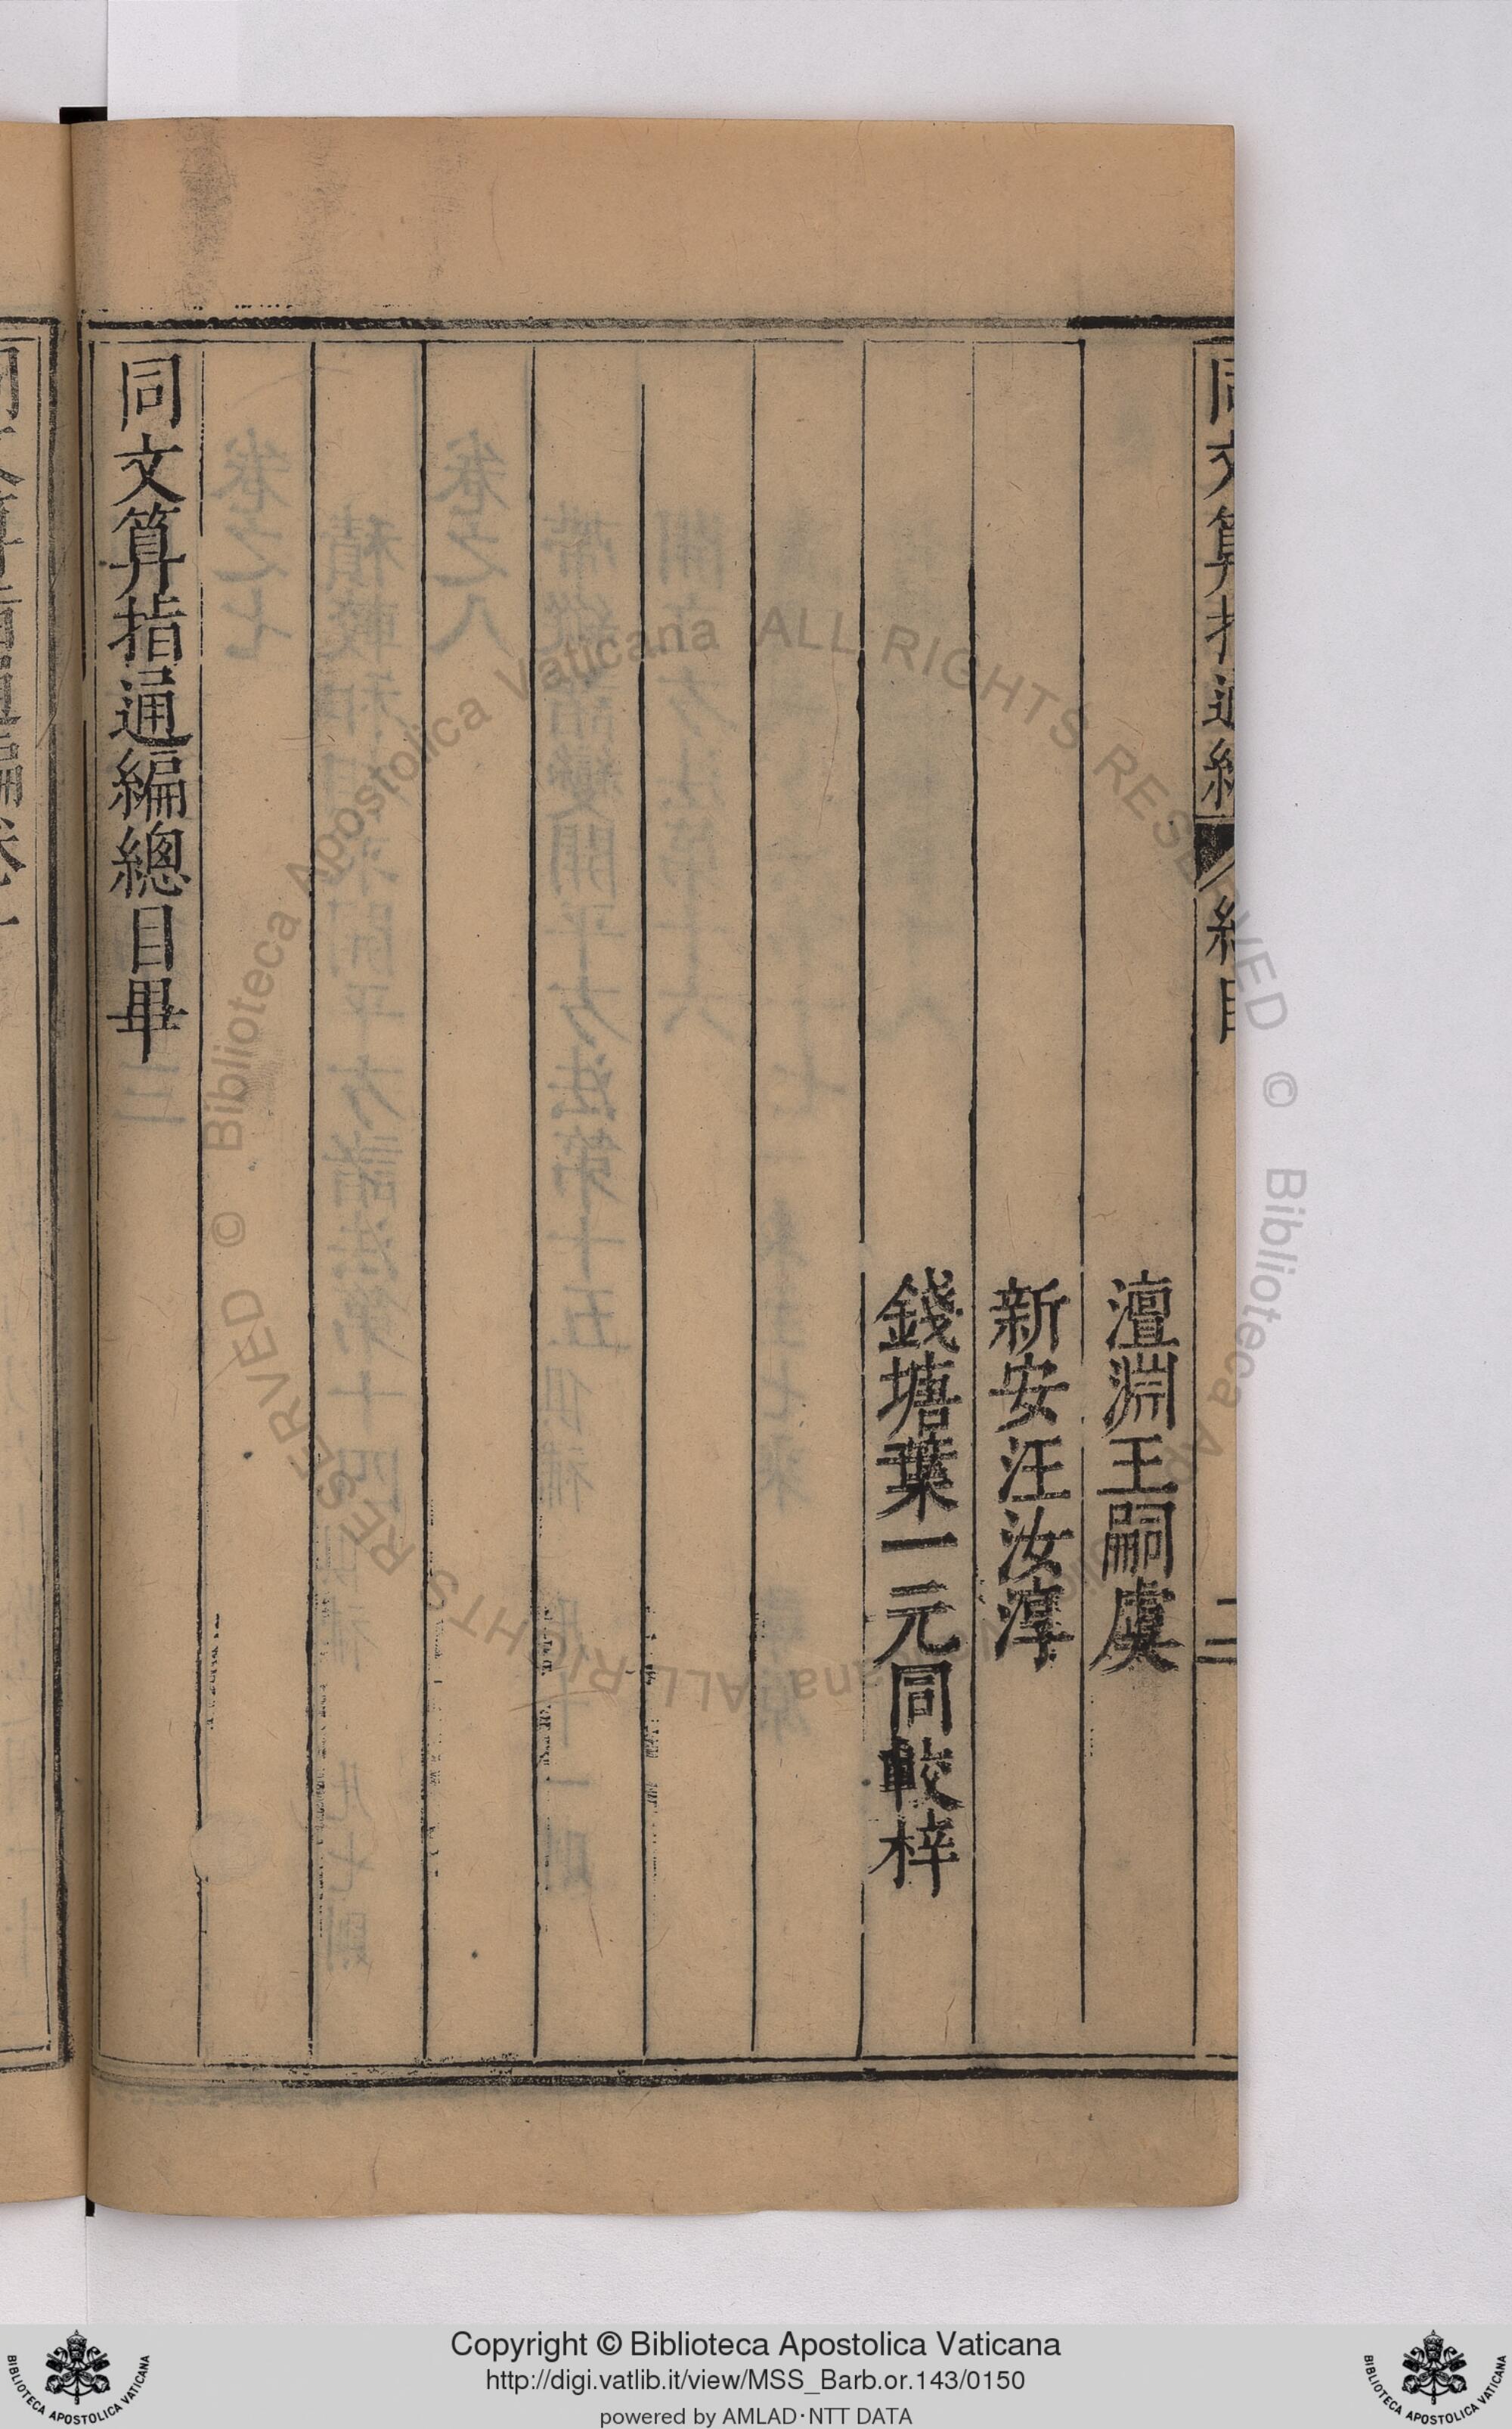 同文算指通編 總目 二
澶淵王嗣虞
新安汪汝淳
錢塘葉一元同較梓
同文算指通編總目畢
Copyright © Biblioteca Apostolica Vaticana
http://digi.vatlib.it/view/MSS_Barb.or.143/0150
powered by AMLAD·NTT DATA
BIBLIOTECA APOSTOLICA VATICANA
BIBLIOTECA APOSTOLICA VATICANA
© Biblioteca Apostolica Vaticana ALL RIGHTS RESERVED
© Biblioteca Apostolica Vaticana ALL RIGHTS RESERVED